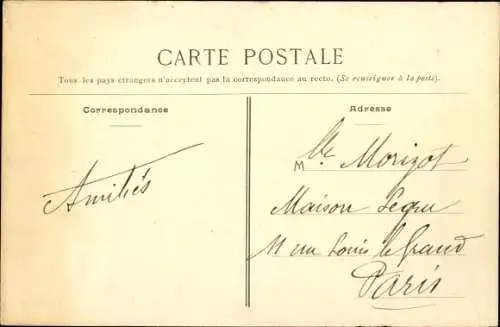 CARTE POSTALE
Tous les pays étrangers n'acceptent pas la correspondance au recto. (Se renseigner à la poste).
Correspondance
Adresse
Amitiés
Mlle Morizot
Maison Lequ
11 rue Louis le Grand
Paris